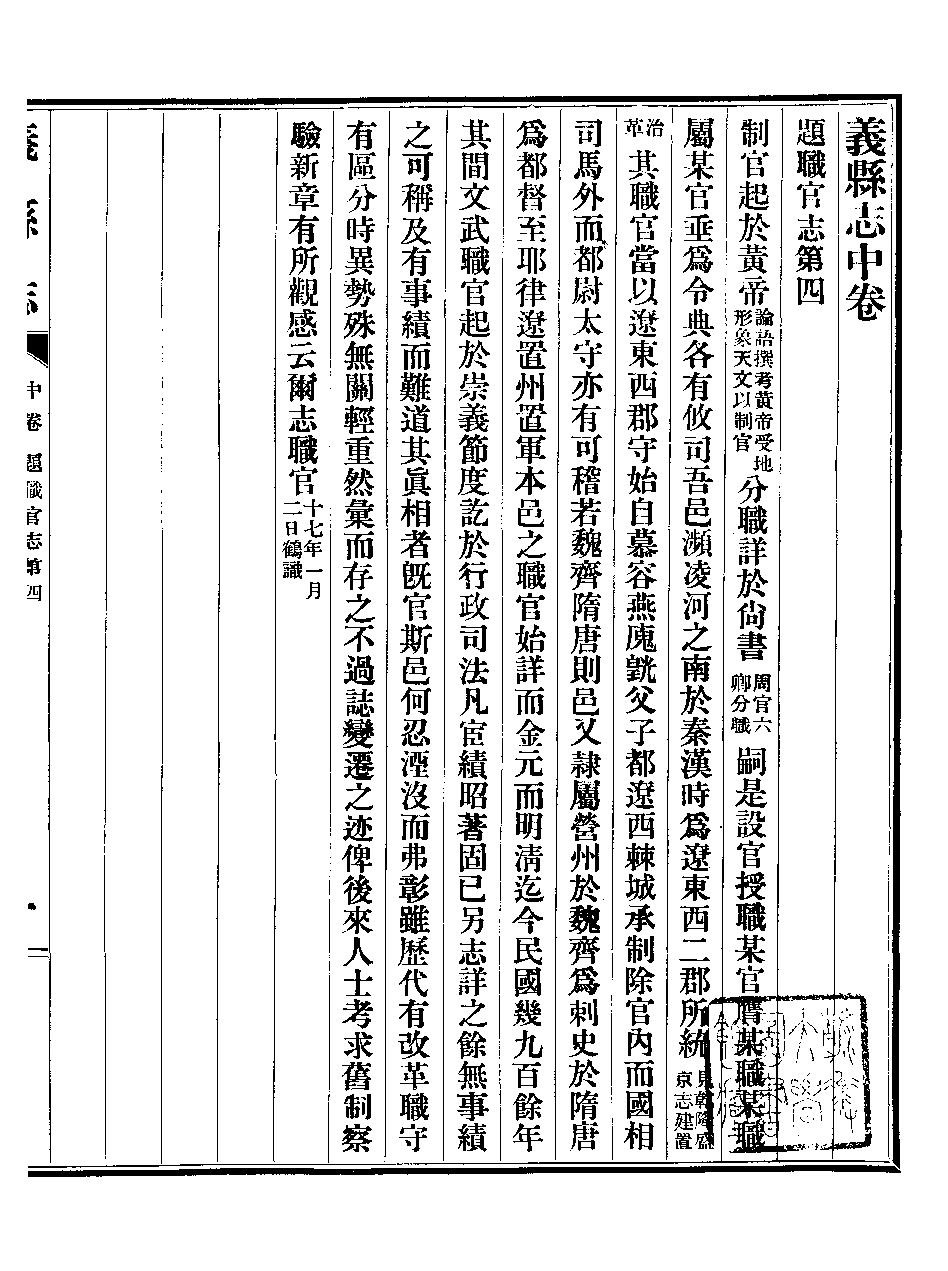 義縣志中卷
題職官志第四
制官起於黃帝論語撰考黃帝受地形象天文以制官分職詳於尙書周官六卿分職嗣是設官授職某官膺某職某職
屬某官垂爲令典各有攸司吾邑瀕凌河之南於秦漢時爲遼東西二郡所統見乾隆盛京志建置
治革其職官當以遼東西郡守始自慕容燕廆皝父子都遼西棘城承制除官內而國相
司馬外而都尉太守亦有可稽若魏齊隋唐則邑又隸屬營州於魏齊爲刺史於隋唐
爲都督至耶律遼置州置軍本邑之職官始詳而金元而明清迄今民國幾九百餘年
其間文武職官起於崇義節度訖於行政司法凡宦績昭著固已另志詳之餘無事績
之可稱及有事績而難道其眞相者旣官斯邑何忍湮沒而弗彰雖歷代有改革職守
有區分時異勢殊無關輕重然彙而存之不過誌變遷之迹俾後來人士考求舊制察
驗新章有所觀感云爾志職官十七年一月二日鶴識
義縣志 中卷 題職官志第四 一